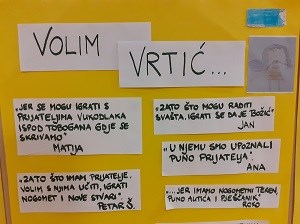 VOLIM
VRTIĆ...
"JER SE MOGU IGRATI S
PRIJATELJIMA VUKODLAKA
ISPOD TOBOGANA GDJE SE
SKRIVAMO"
MATIJA
"ZATO ŠTO IMAM PRIJATELJE.
VOLIM S NJIMA UČITI, IGRATI
NOGOMET I NOVE STVARI".
PETAR Š.
"ZATO ŠTO MOGU RADITI
SVAŠTA. IGRATI SE DA JE BOŽIĆ"
JAN
"U NJEMU SMO UPOZNALI
PUNO PRIJATELJA".
ANA
"...JER IMAMO NOGOMETNI TEREN,
PUNO AUTIĆA I PJEŠČANIK"
ROKO